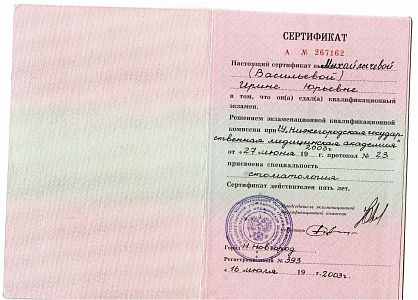 СЕРТИФИКАТ
А № 267162
Настоящий сертификат выдан Михайлычевой
(Васильевой)
Ирине Юрьевне
в том, что он(а) сдал(а) квалификационный
экзамен.
Решением экзаменационной квалификационной
комиссии при "Нижегородская государ-
ственная медицинская академия"
от «27 июня 19 2003г. г. протокол № 23
присвоена специальность
стоматология
Сертификат действителен пять лет.
Председатель экзаменационной
квалификационной комиссии
Город Н.Новгород
Регистрационный № 393
«16 июля 19 г. 2003г.